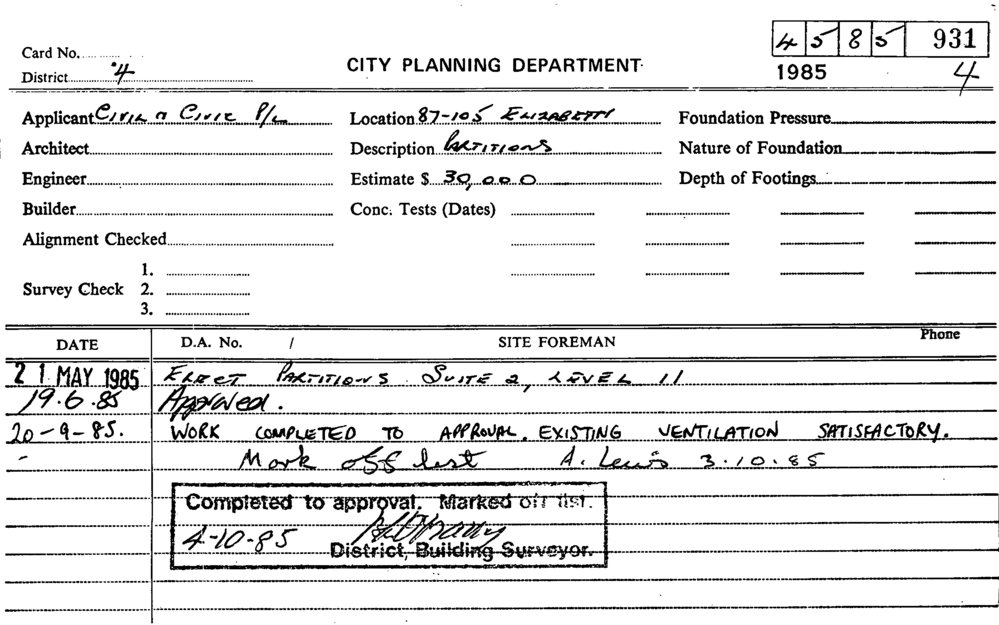 45 85 931
Card No.
District 4 CITY PLANNING DEPARTMENT 1985 4
Applicant Civil & Civic P/L Location 87-105 ELIZABETH Foundation Pressure
Architect Description PARTITIONS Nature of Foundation
Engineer Estimate $ 30,000 Depth of Footings
Builder Conc. Tests (Dates)
Alignment Checked
1.
Survey Check 2.
3.
DATE D.A. No. / SITE FOREMAN Phone
21 MAY 1985 ERECT PARTITIONS SUITE 2, LEVEL 11
19.6.85 Approved.
20-9-85. WORK COMPLETED TO APPROVAL. EXISTING VENTILATION SATISFACTORY.
- Mark off list A. Lewis 3.10.85
Completed to approval. Marked off list.
4-10-85
District, Building Surveyor.